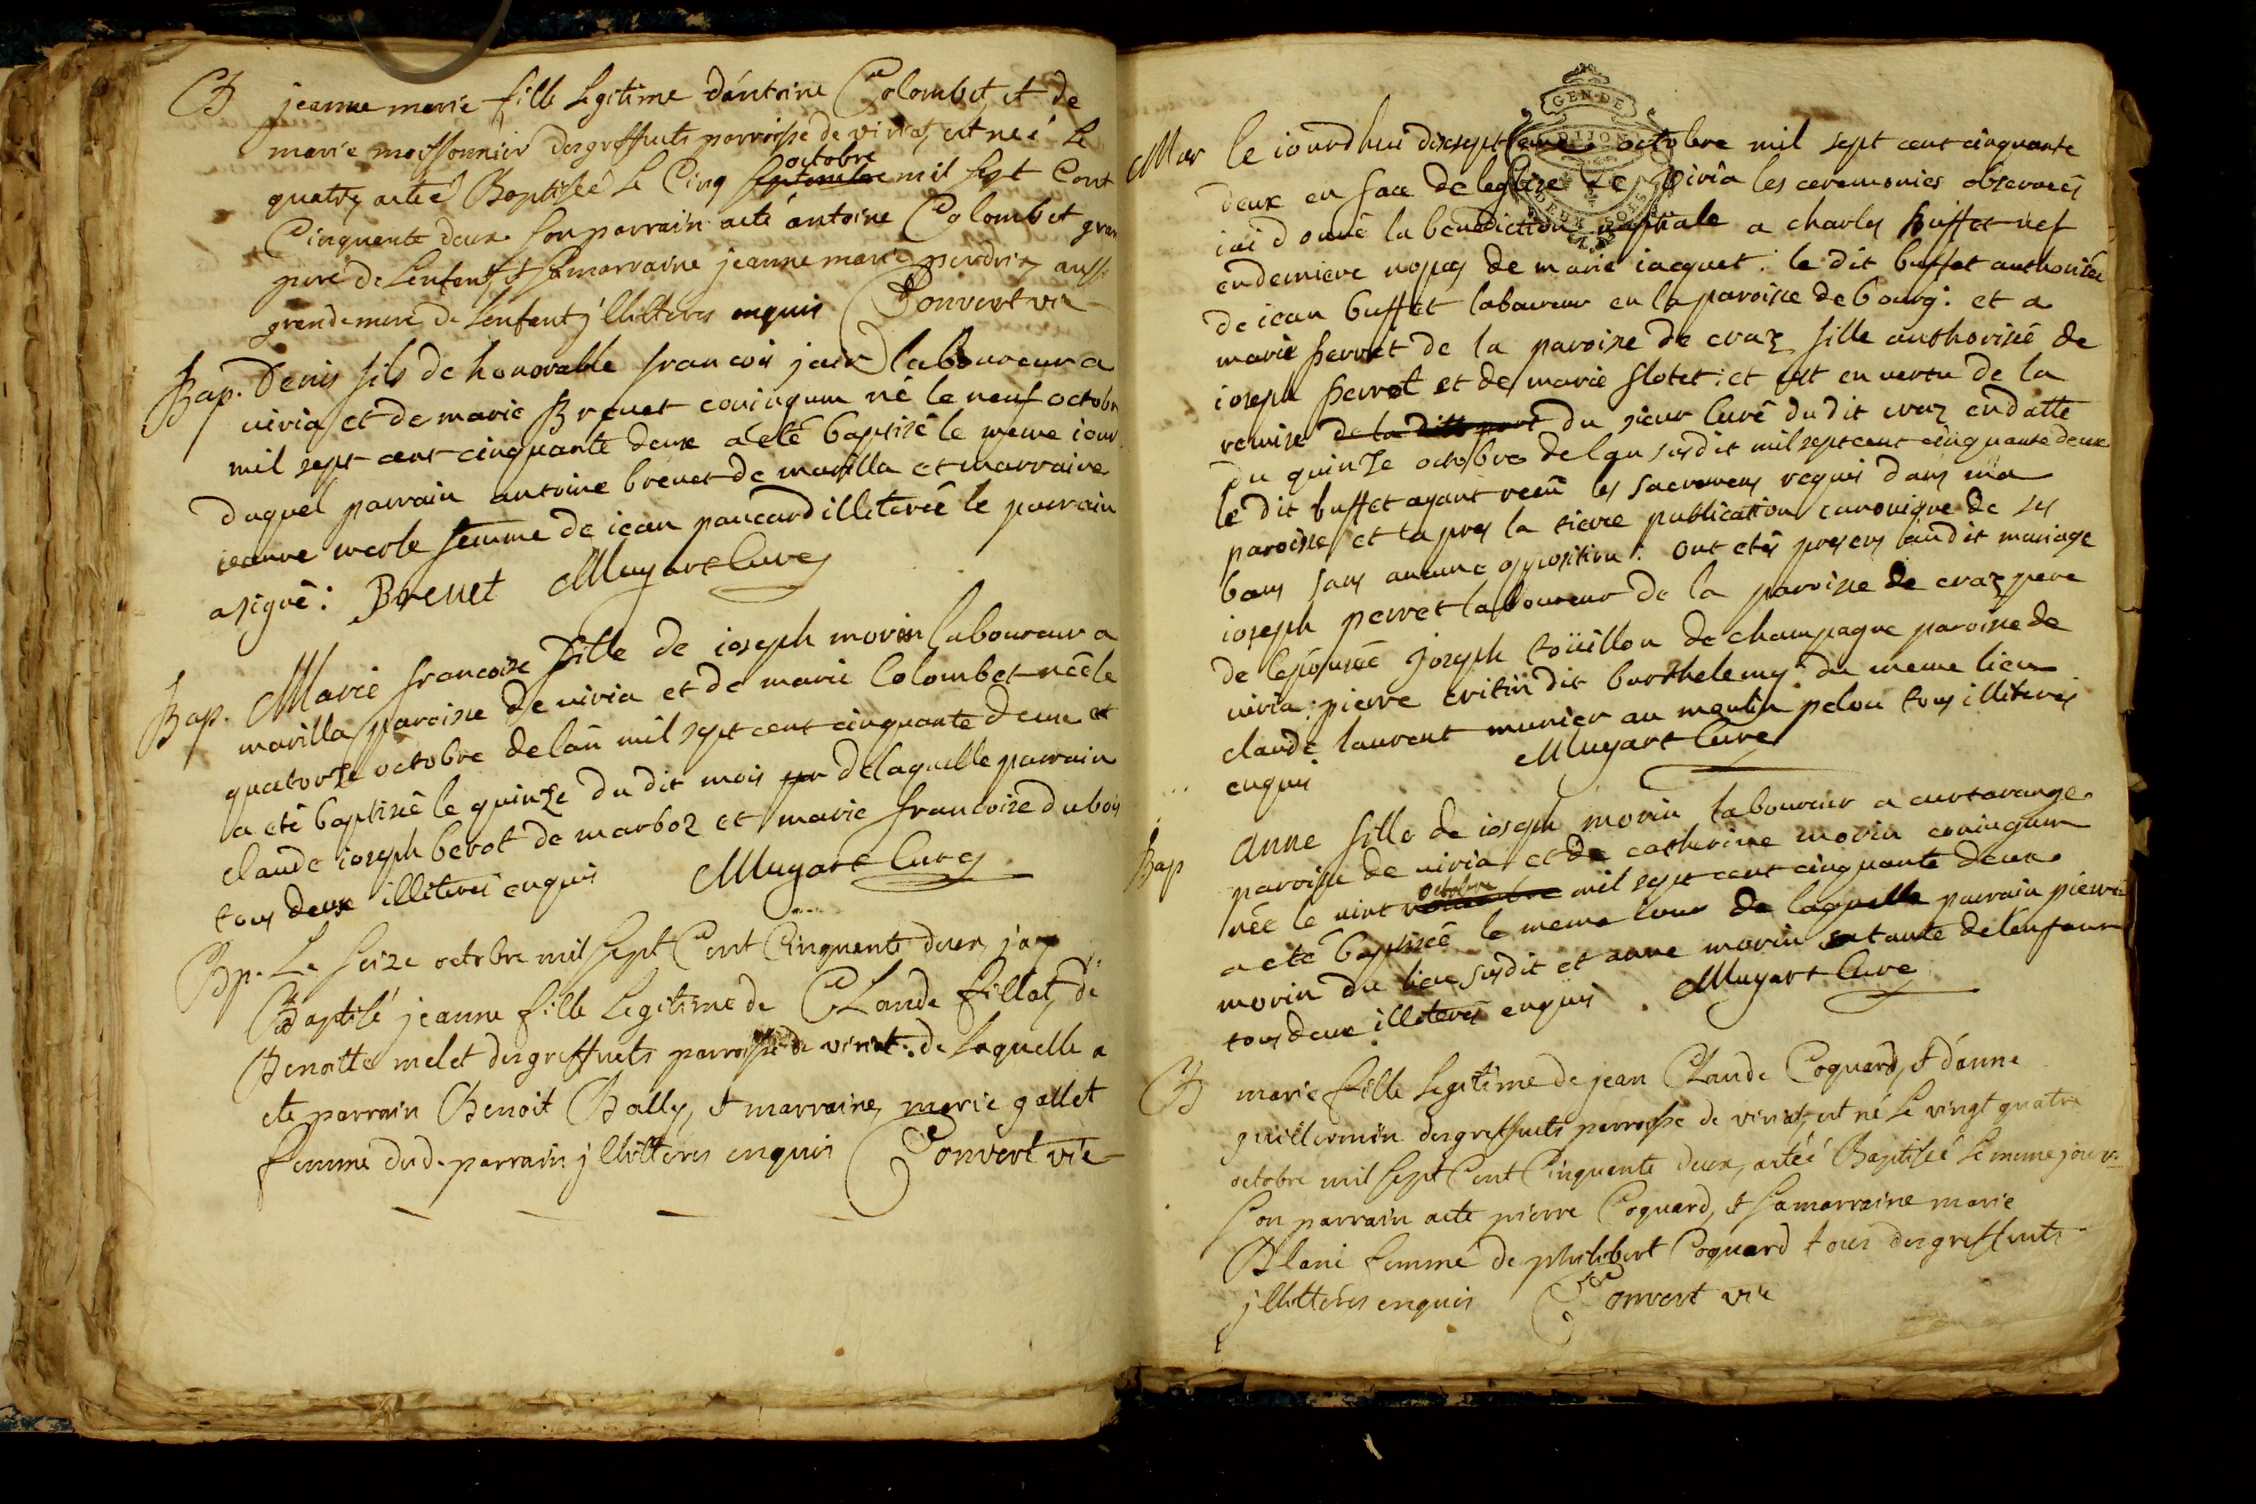 B jeanne marie fille Legitime d'antoine Colombet, et de
marie moissonnier desgreffuets parroisse de viriat, est neé Le
quatre, aeteé Baptiseé Le Cinq septembre octobre mil sept Cent
Cinquente deux. son parrain aeté antoine Colombet gran
pere de Lenfent, et sa marraine jeanne marie perdrix, aussi
grendemere de Lenfent jllitteres enquis Convert vic
Bap. Denis fils de honorable francois jair laboureur a
viria et de marie Brevet coniugum né le neuf octobr
mil sept cent cinquante deux a eté baptisé le meme iour
duquel parrain antoine brevet de marilla et marraine
ieanne merle femme de iean paucard illiterée le parrain
a signé : Brevet Mugart Curé
Bap. Marie francoise fille de ioseph morin laboureur a
marilla paroisse de viria et de marie Colombet née le
quatorze octobre de lan mil sept cent cinquante deux et
a eté baptisée le quinze du dit mois par de laquelle parrain
claude ioseph berot de marboz et marie francoise dubois
tous deux illiterés enquis Mugart Curé
Bp. Le seize octobre mil sept Cent Cinquente deux, jay
Baptisé jeanne fille Legitime de CLaude fillat, de
Benoitte melet desgreffuets parroisse de viriat. de Laquelle a
ete parrain Benoit Bally, et marraine, marie gallet
femme dud. parrain jllitteres enquis Convert vic
GEN. DE
DIJON
DEUX SOLS
Mar le iourdhui dixsept octobre mil sept cent cinquante
deux en face de leglise de viria les ceremonies observées
iai donné la benediction nuptiale a charles Buffet vef
en derniere nopces de marie iacquet : le dit buffet authorisée
de iean buffet laboureur en la paroisse de bourg : et a
marie perret de la paroisse de craz fille authorisée de
ioseph perret et de marie flotet : et est en vertu de la
remise de la ditte part du sieur Curé du dit craz en datte
du quinze octobre de lan susdit mil sept cent cinquante deux
le dit buffet ayant receu les sacremens requis dans ma
paroisse et apres la tierce publication canonique de ses
bans sans aucune opposition : ont etés presens audit mariage
ioseph perret laboureur de la paroisse de craz pere
de lepousée joseph toüillon de champagne paroisse de
viria : pierre critin dit barthelemy du meme lieu
claude laurent munier au moulin pelou tous illiterés
enquis Mugart Curé
Bap anne fille de ioseph morin laboureur a curtarange
paroisse de viria et de catherine morin coniugum
née le vint novembre octobre mil sept cent cinquante deux
a eté baptisée le meme iour de laquelle parrain pierre
morin du lieu susdit et anne morin sa tante de lenfant
tous deux illiterés enquis . Mugart Curé
B marie fille Legitime de jean Claude Coquard, et d'anne
guillermin desgreffuets parroisse de viriat, est né Le vingt quatre
octobre mil sept Cent Cinquente deux, aeteé Baptiseé Le meme jour
son parrain aete pierre Coquard, et sa marraine marie
Blanc femme de philibert Coquard tous desgreffuets
jllitteres enquis Convert vic